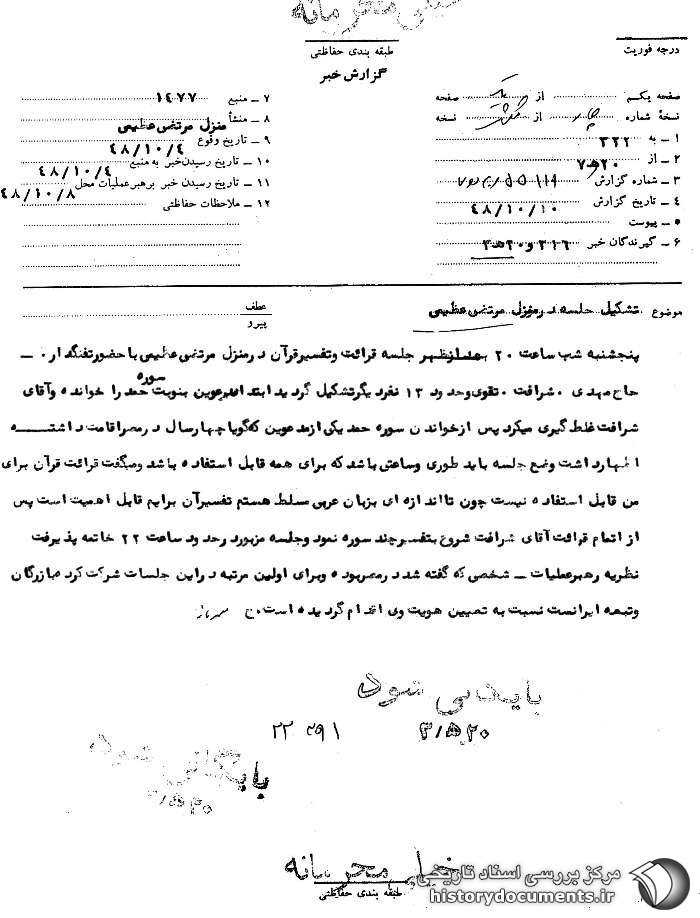 خیلی محرمانه
طبقه بندی حفاظتی
گزارش خبر
درجه فوریت
صفحه یکم از یک صفحه
نسخهٔ شماره چهار از هشت نسخه
۱ ـ به ۳۲۲
۲ ـ از ۲۰ ه ۷
۳ ـ شماره گزارش
۴ ـ تاریخ گزارش ۴۸/۱۰/۱۰
۵ ـ پیوست
۶ ـ گیرندگان خبر ۳۱۶ و ۲۰ ه ۳
۷ ـ منبع ۱۴۷۷
۸ ـ منشأ منزل مرتضی عظیمی
۹ ـ تاریخ وقوع ۴۸/۱۰/۴
۱۰ ـ تاریخ رسیدن خبر به منبع ۴۸/۱۰/۴
۱۱ ـ تاریخ رسیدن خبر برهبر عملیات محل ۴۸/۱۰/۸
۱۲ ـ ملاحظات حفاظتی
موضوع تشکیل جلسه در منزل مرتضی عظیمی
عطف
پیرو
پنجشنبه شب ساعت ۲۰ بعدازظهر جلسه قرائت وتفسیرقرآن در منزل مرتضی عظیمی با حضورتفنگدار ۰ ـ
حاج مهدی ۰ شرافت ۰ تقوی وحدود ۱۳ نفردیگرتشکیل گردید ابتدا مدعوین بنوبت سوره حمد را خوانده وآقای
شرافت غلط گیری میکرد پس ازخواندن سوره حمد یکی ازمدعوین که گویا چهارسال در مصراقامت داشتـــه
اظهار داشت وضع جلسه باید طوری وساعتی باشد که برای همه قابل استفاده باشد ومیگفت قرائت قرآن برای
من قابل استفاده نیست چون تا اندازه ای بزبان عربی مسلط هستم تفسیرآن برایم قابل اهمیت است پس
از اتمام قرائت آقای شرافت شروع بتفسیرچند سوره نمود وجلسه مزبوردر حدود ساعت ۲۲ خاتمه پذیرفت
نظریه رهبرعملیات ـ شخصی که گفته شد در مصربوده وبرای اولین مرتبه دراین جلسات شرکت کرده بازرگان
وتبعه ایرانست نسبت به تعیین هویت وی اقدام گردیده است۰ح
بایگانی شود
۲۰ ه ۳
بایگانی شود
خیلی محرمانه
طبقه بندی حفاظتی
مرکز بررسی اسناد تاریخی
historydocuments.ir